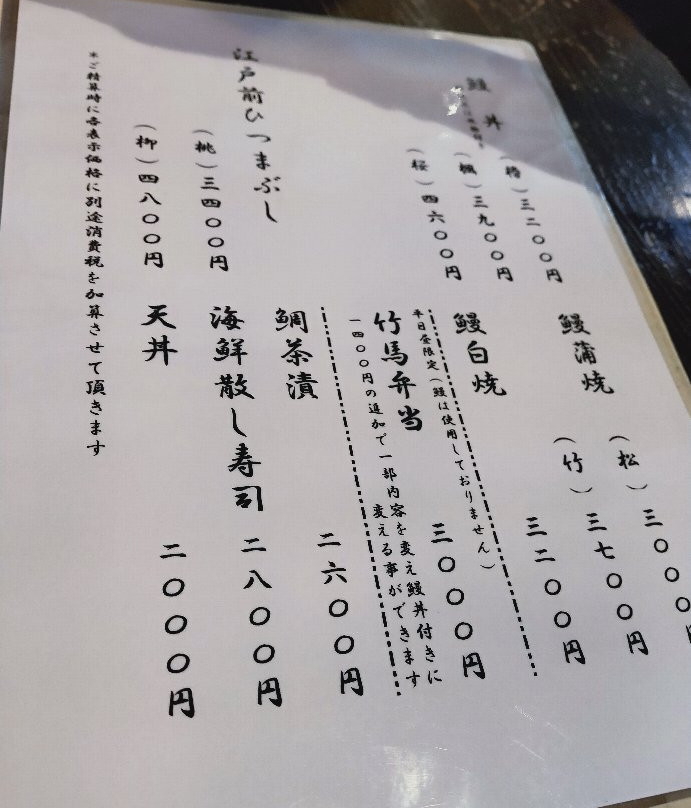 鰻丼
（椿）三二〇〇円
（楓）三九〇〇円
（桜）四六〇〇円
江戸前ひつまぶし
（桃）三四〇〇円
（柳）四八〇〇円
鰻蒲焼
（松）三〇〇〇
（竹）三七〇〇円
鰻白焼 三二〇〇円
平日昼限定（鰻は使用しておりません）
竹馬弁当 三〇〇〇円
一四〇〇円の追加で一部内容を変え鰻丼付きに
変える事ができます
鯛茶漬 二六〇〇円
海鮮散し寿司 二八〇〇円
天丼 二〇〇〇円
＊ご精算時に各表示価格に別途消費税を加算させて頂きます